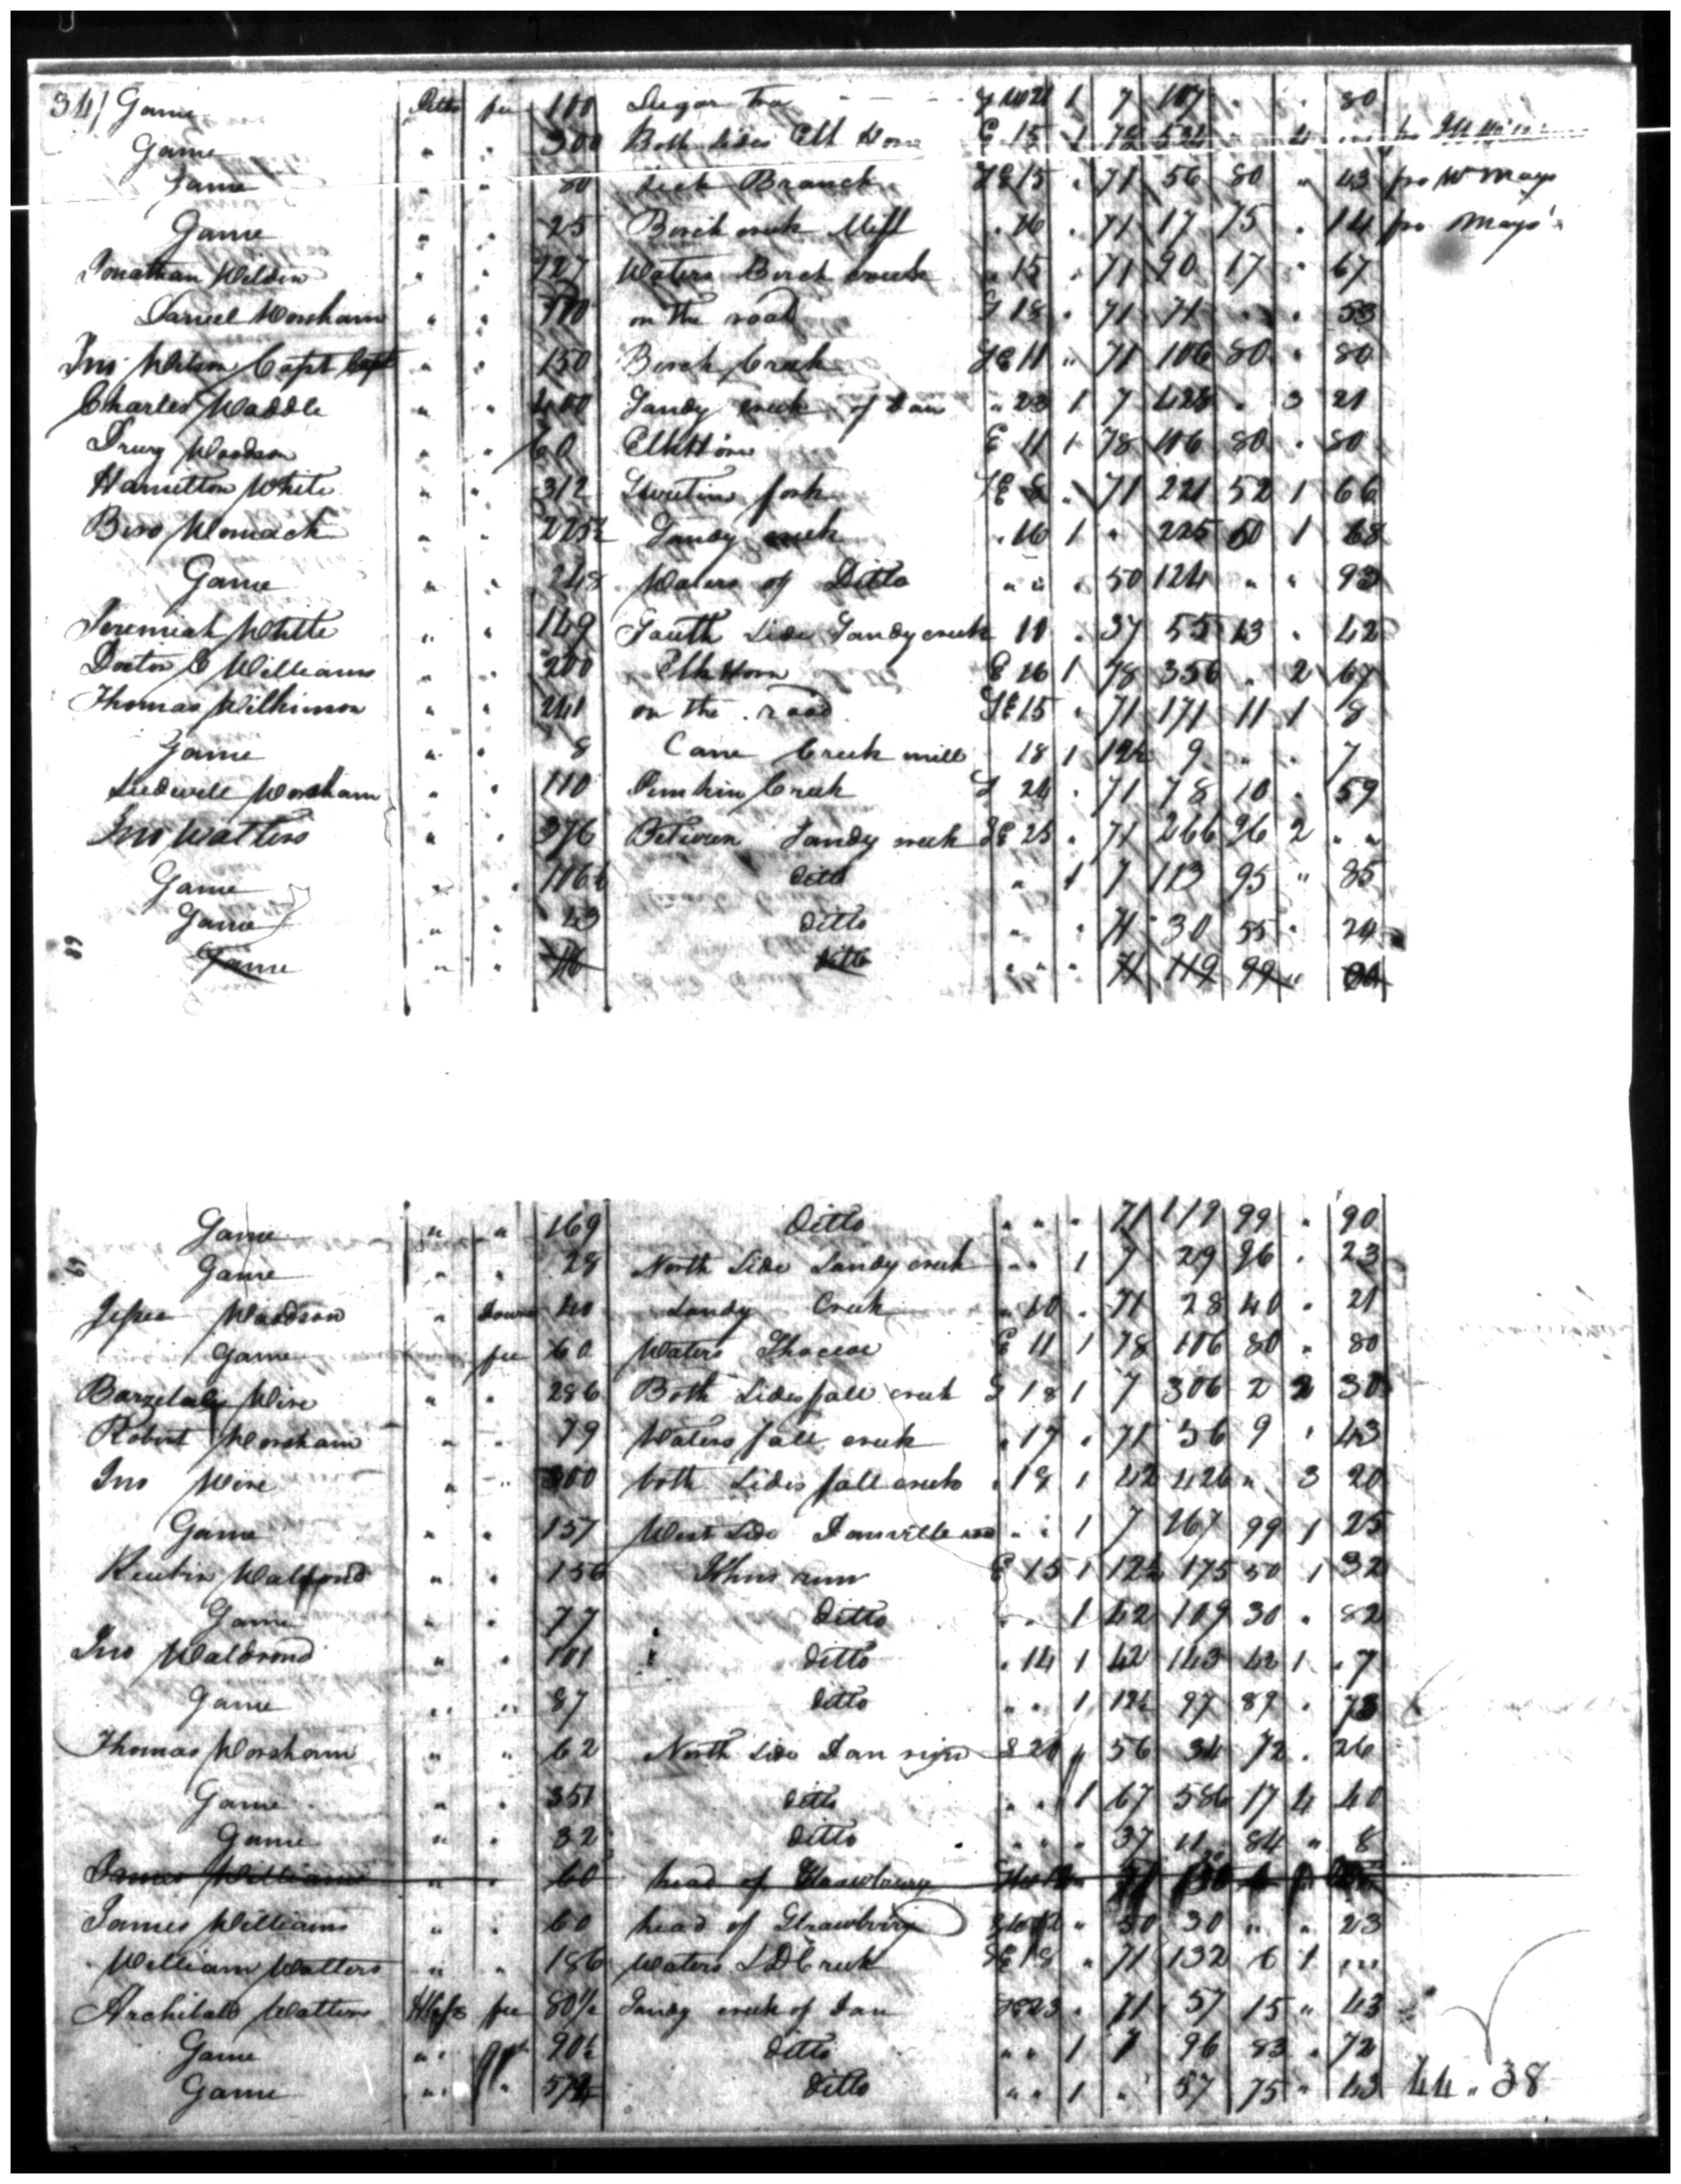 34/ Same Ditto fee 100 Sugar Tree S W 21 1 7 107 " " 80
Same " " 300 Both Sides Elk Horn E 15 1 78 534 " 4
Same " " 80 Lick Branch SE 15 " 71 56 80 " 43 pr W Mays
Same " " 25 Birch creek Mill " 16 " 71 17 75 " 14 pr Mays
Jonathan Weldon " " 127 Waters Birch creek " 15 " 71 90 17 " 67
Daniel Worsham " " on the road S 18 " 71 71 " " 53
Jno Wilson Capt " " 150 Birch Creek SE 11 " 71 106 80 " 80
Charles Waddle " " 400 Sandy creek of Dan " 23 1 7 428 " 3 21
Drury Woodson " " 60 Elk Horn E 11 1 78 106 80 " 80
Hamilton White " " 312 fork SE 8 " 71 221 52 1 66
Womack " " 225½ Sandy creek " 16 1 " 225 50 1 68
Same " " 248 Waters of Ditto " " " 50 124 " " 93
Jeremiah White " " 149 South Side Sandy creek 11 " 37 55 13 " 42
Doctor C Williams " " 200 Elk Horn E 26 1 78 356 " 2 67
Thomas Wilkinson " " 241 on the road SE 15 " 71 171 11 1 8
Same " " 8 Cane Creek mill 18 1 12½ 9 " " 7
Ludwell Worsham " " 110 Pumkin Creek S 24 " 71 78 10 " 59
Jno Watters " " 376 Between Sandy creek SE 25 " 71 266 96 2 " "
Same " " 106½ Ditto " 1 7 113 95 " 85
Same " " 43 Ditto " " 71 30 55 " 24
Same " " Ditto " " " 71 119 99 "
69
Same " " 169 Ditto " " " 71 119 99 " 90
Same " " 28 North Side Sandy creek " " 1 7 29 96 " 23
69
Jesse Woodson " Dower 40 Sandy Creek " 10 " 71 28 40 " 21
Same fee 60 Waters E 11 1 78 106 80 " 80
Wire " " 286 Both Sides fall creek S 18 1 7 306 2 2 30
Robert Worsham " " 79 Waters fall creek " 17 " 71 56 9 " 43
Jno Wire " " 300 both Sides fall creek " 18 1 42 426 " 3 20
Same " " 157 West Side Danville " " 1 7 167 99 1 25
Reubin Waldrond " " 156 run E 15 1 12½ 175 50 1 32
Same " " 77 Ditto " " 1 42 109 30 " 82
Jno Waldrond " " 101 Ditto " 14 1 42 143 42 1 " 7
Same " " 87 Ditto " " 1 12½ 97 89 " 73
Thomas Worsham " " 62 North Side Dan river S 20 " 56 34 72 " 26
Same " " 351 Ditto " " 1 67 586 17 4 40
Same " " 32 Ditto " " " 37 11 84 " 8
James Williams " " 60 head of Strawberry
James Williams " " 60 head of Strawberry " 50 30 " " 23
William Watters " " 186 Waters S D Creek SE 18 " 71 132 6 1 "
Archibald Watters fee 80½ Sandy creek of Dan SE 23 " 71 57 15 " 43
Same " " 90½ Ditto " " 1 7 96 83 " 72
Same " " Ditto " " 1 " 57 75 " 43 44 " 38